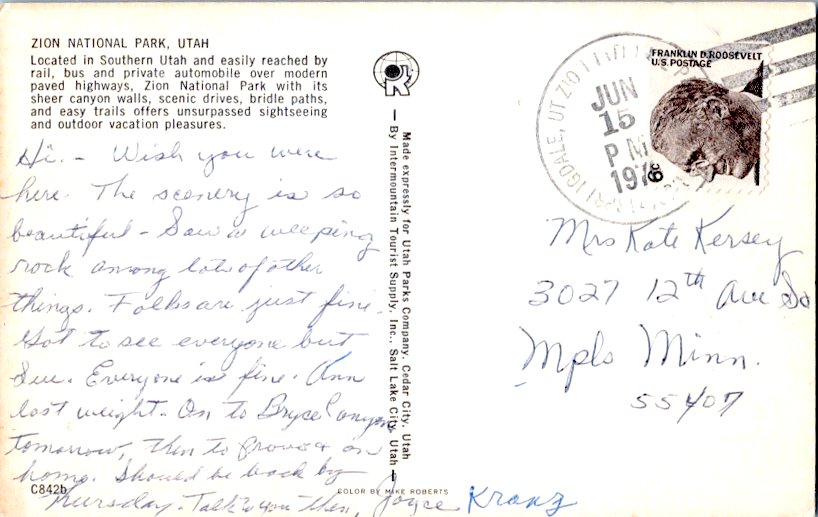 ZION NATIONAL PARK, UTAH
Located in Southern Utah and easily reached by
rail, bus and private automobile over modern
paved highways, Zion National Park with its
sheer canyon walls, scenic drives, bridle paths,
and easy trails offers unsurpassed sightseeing
and outdoor vacation pleasures.
Hi. - Wish you were
here. The scenery is so
beautiful - Saw a weeping
rock among lots of other
things. Folks are just fine.
Got to see everyone but
Sue. Everyone is fine. Ann
lost weight. On to Bryce Canyon
tomorrow, then to Provo & on
home. Should be back by
Thursday. Talk to you then, Joyce Kranz
C842b
COLOR BY MIKE ROBERTS
Made expressly for Utah Parks Company, Cedar City, Utah
By Intermountain Tourist Supply, Inc., Salt Lake City, Utah
JUN
15
PM
FRANKLIN D. ROOSEVELT
U.S. POSTAGE
6c
Mrs Kate Kersey
3027 12th Ave So
Mpls Minn.
55407